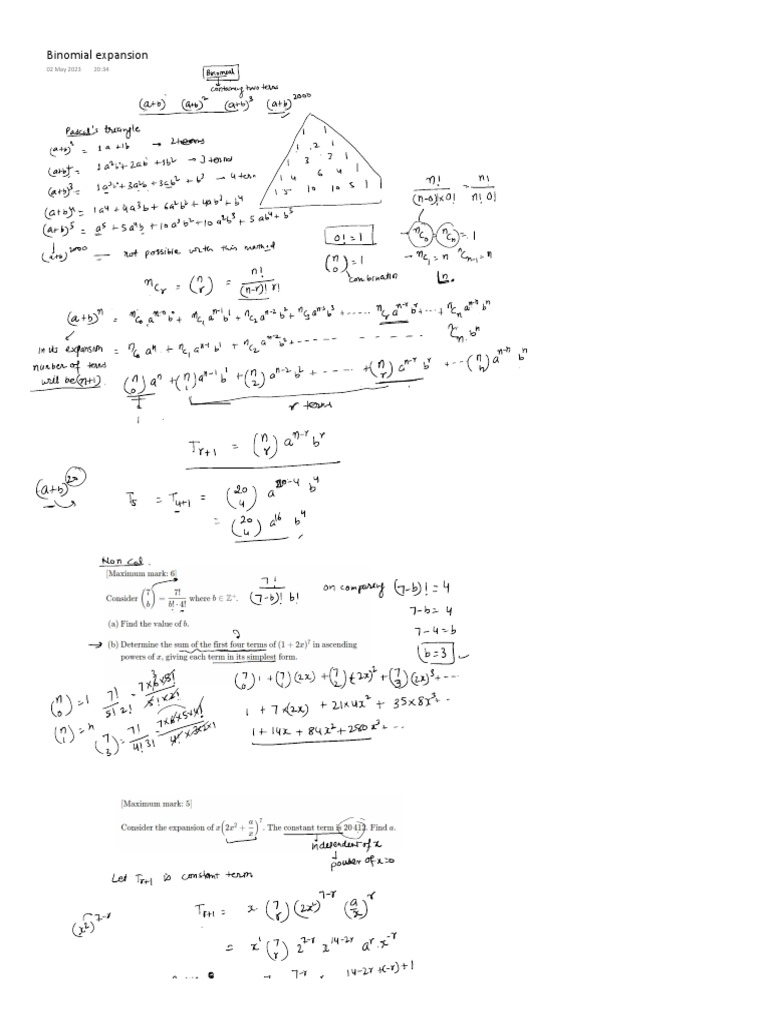 Binomial expansion
02 May 2023 20:34
Binomial
containing two terms
(a+b) (a+b)² (a+b)³ (a+b)²⁰⁰⁰
Pascal's triangle
(a+b)¹ = 1a+1b → 2 terms
(a+b)² = 1a²+2ab+1b² → 3 terms
(a+b)³ = 1a³+3a²b+3ab²+b³ → 4 term
(a+b)⁴ = 1a⁴+4a³b+6a²b²+4ab³+b⁴
(a+b)⁵ = a⁵+5a⁴b+10a³b²+10a²b³+5ab⁴+b⁵
(a+b)²⁰⁰⁰ — not possible with this method
1 1
1 2 1
1 3 3 1
1 4 6 4 1
1 5 10 10 5 1
n!/((n-0)!×0!) = n!/(n! 0!)
0! = 1
ⁿC₀ = ⁿCₙ = 1
(n 0) = 1
→ ⁿC₁ = n ⁿCₙ₋₁ = n
combination
ⁿCᵣ = (n r) = n!/((n-r)! r!)
(a+b)ⁿ = ⁿC₀ aⁿ⁻⁰b⁰ + ⁿC₁ aⁿ⁻¹b¹ + ⁿC₂ aⁿ⁻²b² + ⁿC₃ aⁿ⁻³b³ + ...... ⁿCᵣ aⁿ⁻ʳbʳ + ... + ⁿCₙ aⁿ⁻ⁿbⁿ
In its expansion = ⁿC₀ aⁿ + ⁿC₁ aⁿ⁻¹b¹ + ⁿC₂ aⁿ⁻²b² + ...... ⁿCₙ bⁿ
number of terms
will be (n+1). (n 0) aⁿ + (n 1) aⁿ⁻¹b¹ + (n 2) aⁿ⁻²b² + ...... + (n r) aⁿ⁻ʳbʳ + ... (n n) aⁿ⁻ⁿ bⁿ
1
r terms
Tᵣ₊₁ = (n r) aⁿ⁻ʳ bʳ
(a+b)²⁰
T₅ = T₄₊₁ = (20 4) a²⁰⁻⁴ b⁴
= (20 4) a¹⁶ b⁴
Non cal.
[Maximum mark: 6]
Consider (7 b) = 7!/(b!·4!) where b ∈ ℤ⁺.
7!/((7-b)! b!)
on comparing (7-b)! = 4
7-b = 4
7-4 = b
b = 3
(a) Find the value of b.
(b) Determine the sum of the first four terms of (1 + 2x)⁷ in ascending
powers of x, giving each term in its simplest form.
(7 0) 1 + (7 1)(2x) + (7 2)(2x)² + (7 3)(2x)³ + ...
1 + 7×(2x) + 21×4x² + 35×8x³ + ..
1 + 14x + 84x² + 280x³ + ...
(n 0) = 1 7!/(5! 2!) = 7×6×5!/(5!×2!)
(n 1) = n
(7 3) = 7!/(4! 3!) = 7×6×5×4!/(4!×3×2×1)
[Maximum mark: 5]
Consider the expansion of x(2x² + a/x)⁷. The constant term is 20 412. Find a.
independent of x
power of x=0
Let Tᵣ₊₁ is constant term
Tᵣ₊₁ = x · (7 r) (2x²)⁷⁻ʳ (a/x)ʳ
(x²)⁷⁻ʳ
= x¹ (7 r) 2⁷⁻ʳ x¹⁴⁻²ʳ aʳ · x⁻ʳ
7-r 14-2r+(-r)+1